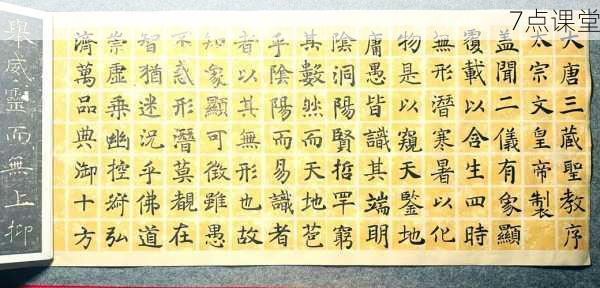 7点课堂
大唐三藏聖教序
太宗文皇帝製
盖聞二儀有象顯
覆載以含生四時
無形潛寒暑以化
物是以窺天鑒地
庸愚皆識其端明
陰洞陽賢哲罕窮
其數然而天地苞
乎陰陽而易識者
者以其無形也故
知象顯可徵雖愚
不惑形潛莫覩在
智猶迷況乎佛道
崇虛乘幽控寂弘
濟萬品典御十方
舉威靈而無上抑